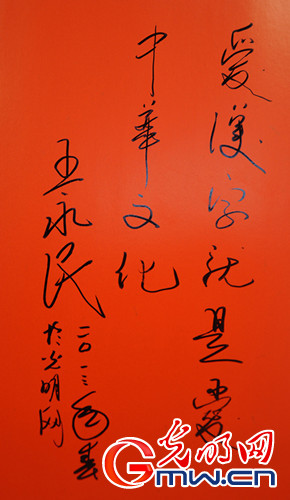 愛漢字就是愛
中華文化
王永民
二〇一三年春
於光明网
光明网
www.GMW.cn